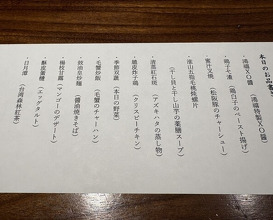 本日のお品書き
・鴻福XO醤 (鴻福特製XO醤)
(鶏白子のペースト揚げ)
・蜜汁叉焼 (松阪豚のチャーシュー)
(干し貝と干し山芋の薬膳スープ)
・清蒸紅石斑 (アズキハタの蒸し物)
・脆皮炸子鶏 (クリスピーチキン)
・季節双蔬 (本日の野菜)
・毛蟹炒飯 (毛蟹のチャーハン)
・豉油皇炒麺 (醤油焼きそば)
・楊枝甘露 (マンゴーのデザート)
・酥皮蛋撻 (エッグタルト)
・日月潭 (台湾森林紅茶)